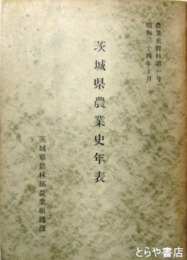 農業史資料第一号
昭和三十四年十月
茨城県農業史年表
茨城県農林部農業技術課
とらや書店